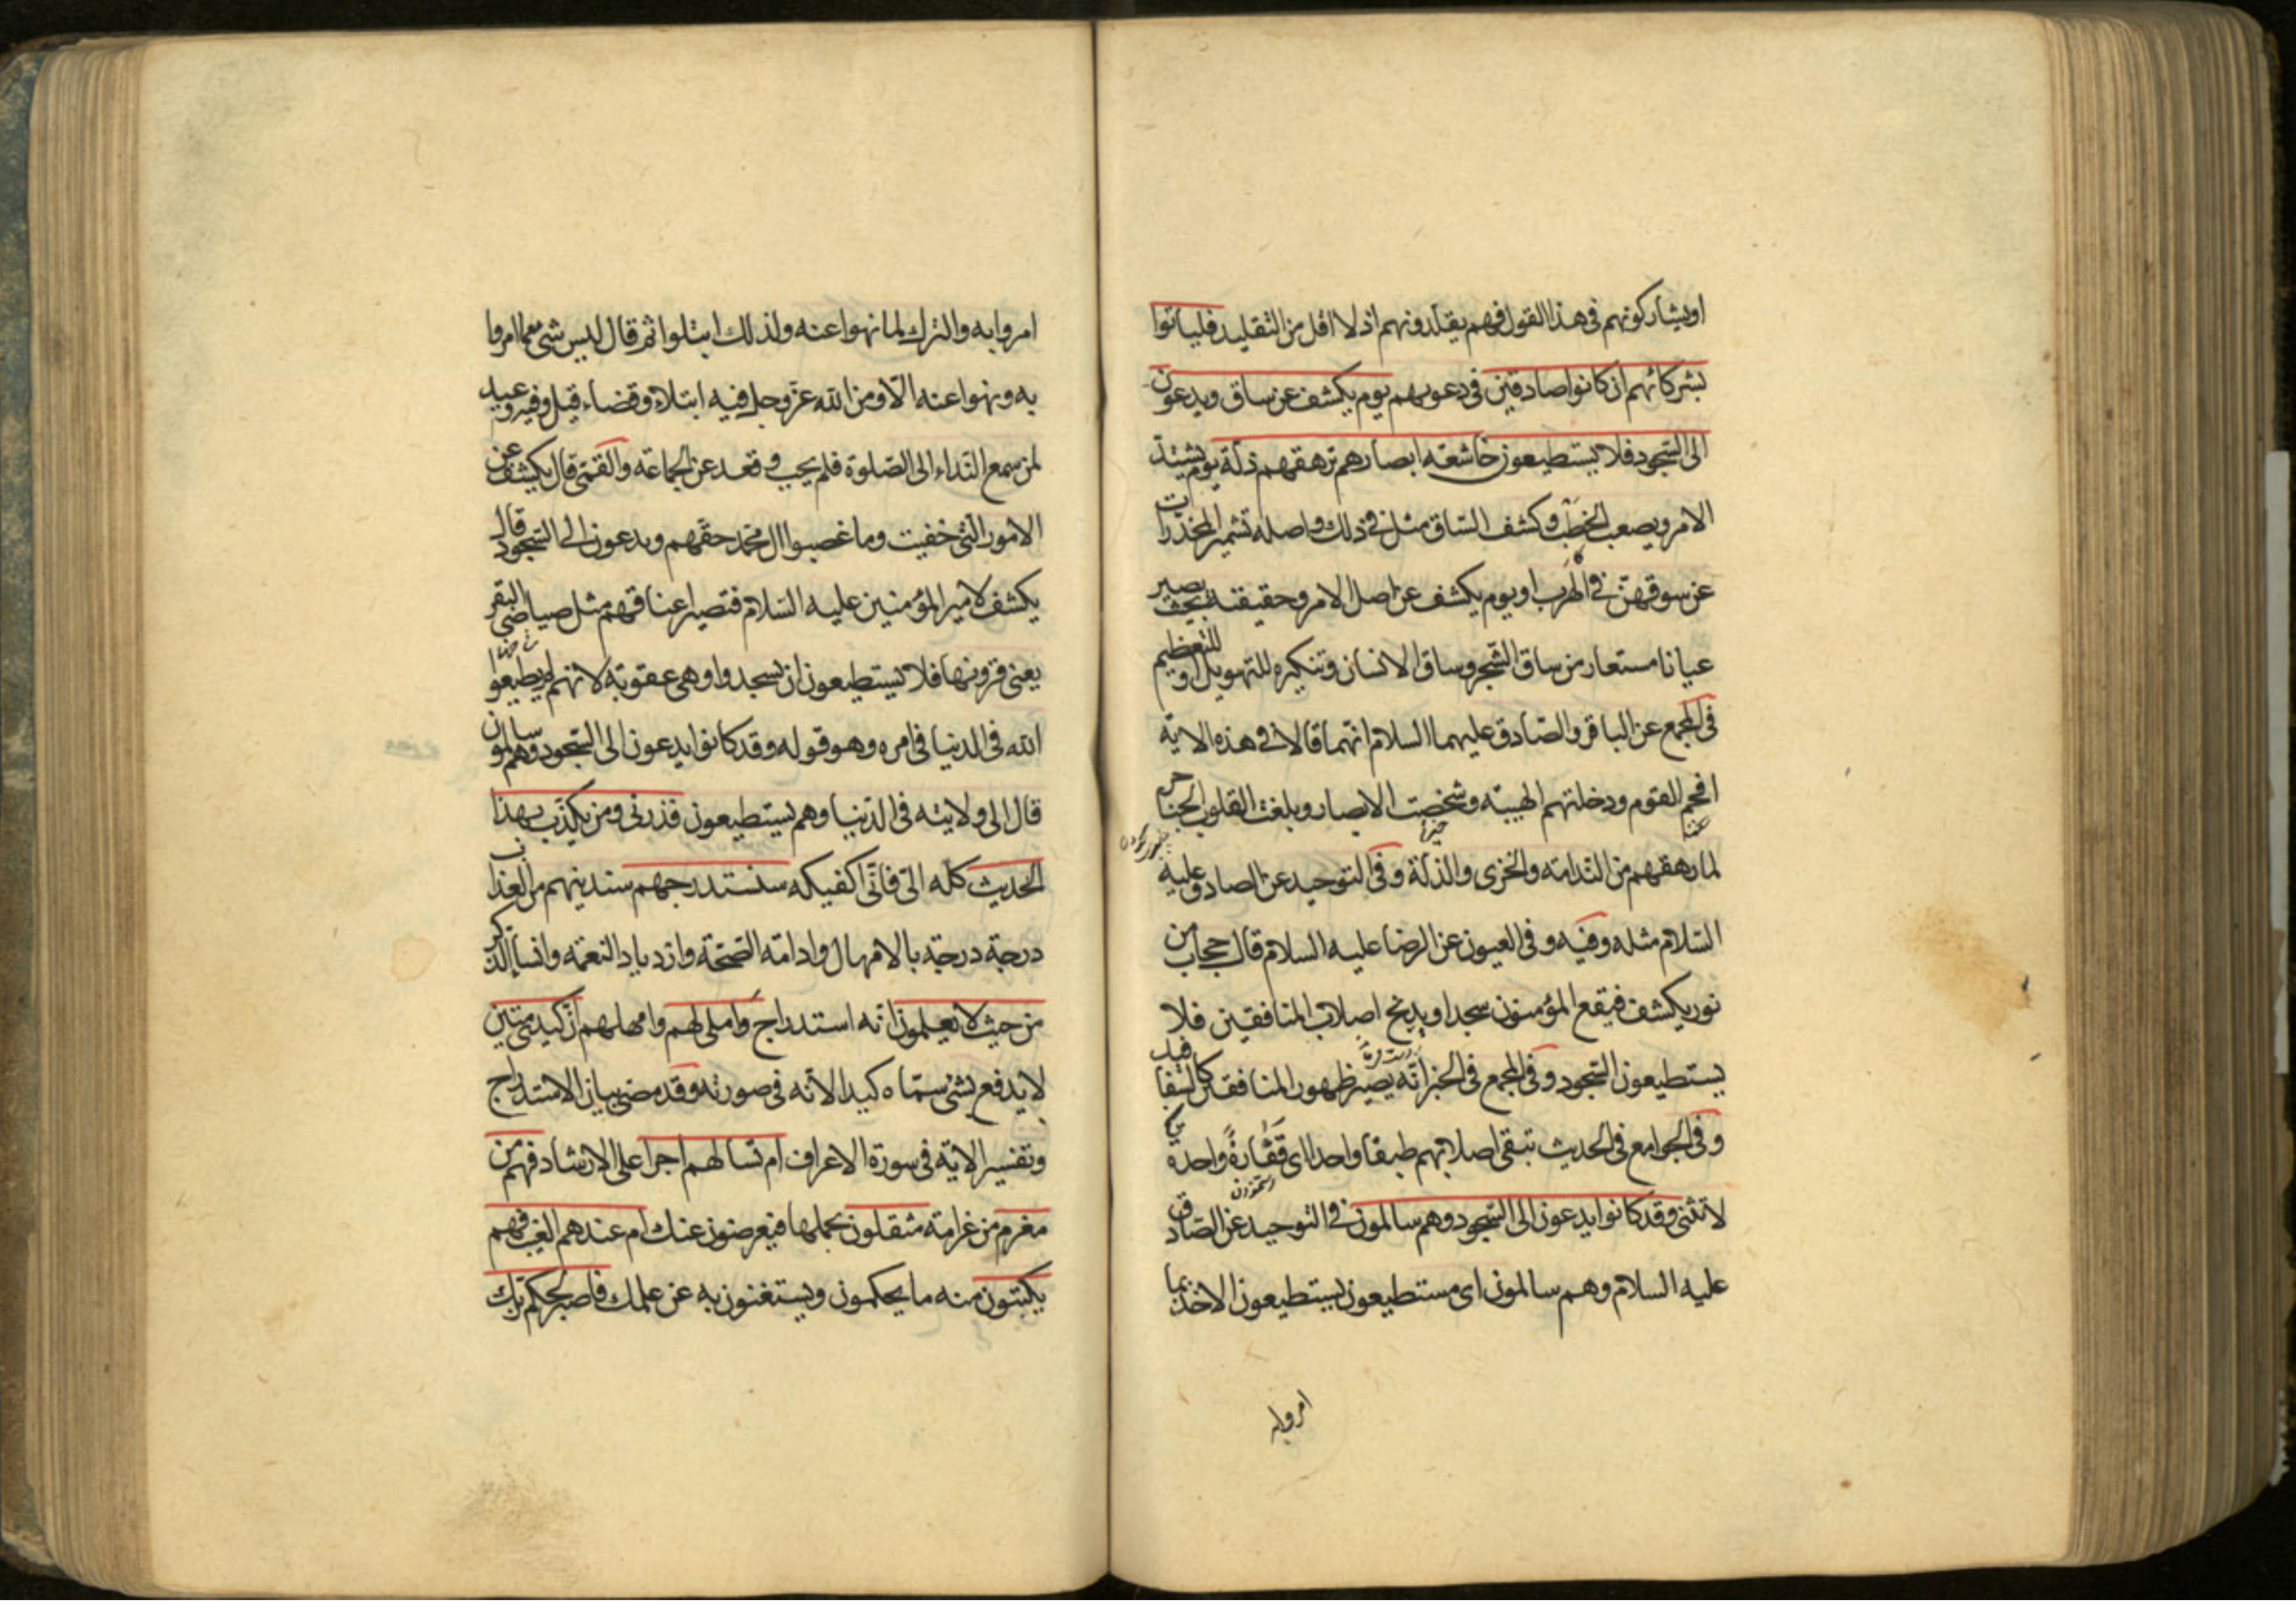 او يشاركونهم في هذا القول فهم يقلدونهم اذ لا اقل من التقليد فلياتوا
بشركائهم ان كانوا صادقين في دعويهم يوم يكشف عن ساق ويدعون
الى السجود فلا يستطيعون خاشعة ابصارهم ترهقهم ذلة يوم يشتد
الامر ويصعب الخطب وكشف الساق مثل في ذلك واصله تشمير المخدرات
عن سوقهن في الهرب او يوم يكشف عن اصل الامر وحقيقته بحيث يصير
عيانا مستعار من ساق الشجر وساق الانسان وتنكيره للتهويل او للتعظيم
في المجمع عن الباقر والصادق عليهما السلام انهما قالا في هذه الاية
افحم القوم ودخلتهم الهيبة وشخصت الابصار وبلغت القلوب الحناجر
لما رهقهم من الندامة والخزى والذلة وفي التوحيد عن الصادق عليه
السلام مثله وفيه وفي العيون عن الرضا عليه السلام قال حجاب من
نور يكشف فيقع المؤمنون سجدا ويدبح اصلاب المنافقين فلا
يستطيعون السجود وفي المجمع في الخبر انه يصير ظهور المنافقين كالسفافيد
وفي الجوامع في الحديث تبقى اصلابهم طبقا واحدا اى فقارة واحدة
لا تثنى وقد كانوا يدعون الى السجود وهم سالمون في التوحيد عن الصادق
عليه السلام وهم سالمون اى مستطيعون يستطيعون الاخذ بما
امروا به
امروا به والترك لما نهوا عنه ولذلك ابتلوا ثم قال ليس شئ مما امروا
به ونهوا عنه الا ومن الله عز وجل فيه ابتلاء وقضاء قيل وفيه وعيد
لمن سمع النداء الى الصلوة فلم يجب وقعد عن الجماعة والقمي قال يكشف عن
الامور التي خفيت وما غصبوا ال محمد حقهم ويدعون الى السجود قال
يكشف لامير المؤمنين عليه السلام فتصير اعناقهم مثل صياصي البقر
يعني قرونها فلا يستطيعون ان يسجدوا وهي عقوبة لانهم لم يطيعوا
الله في الدنيا في امره وهو قوله وقد كانوا يدعون الى السجود وهم سالمون
قال الى ولايته في الدنيا وهم يستطيعون فذرني ومن يكذب بهذا
الحديث كله الى فاني اكفيكه سنستدرجهم سندنيهم من العذاب
درجة درجة بالامهال وادامة الصحة وازدياد النعمة وانساء الذكر
من حيث لا يعلمون انه استدراج واملى لهم وامهلهم ان كيدي متين
لا يدفع بشئ سماه كيدا لانه في صورته وقد مضى بيان الاستدراج
وتفسير الاية في سورة الاعراف ام تسالهم اجرا على الارشاد فهم من
مغرم من غرامة مثقلون بحملها فيعرضون عنك ام عندهم الغيب فهم
يكتبون منه ما يحكمون ويستغنون به عن علمك فاصبر لحكم ربك